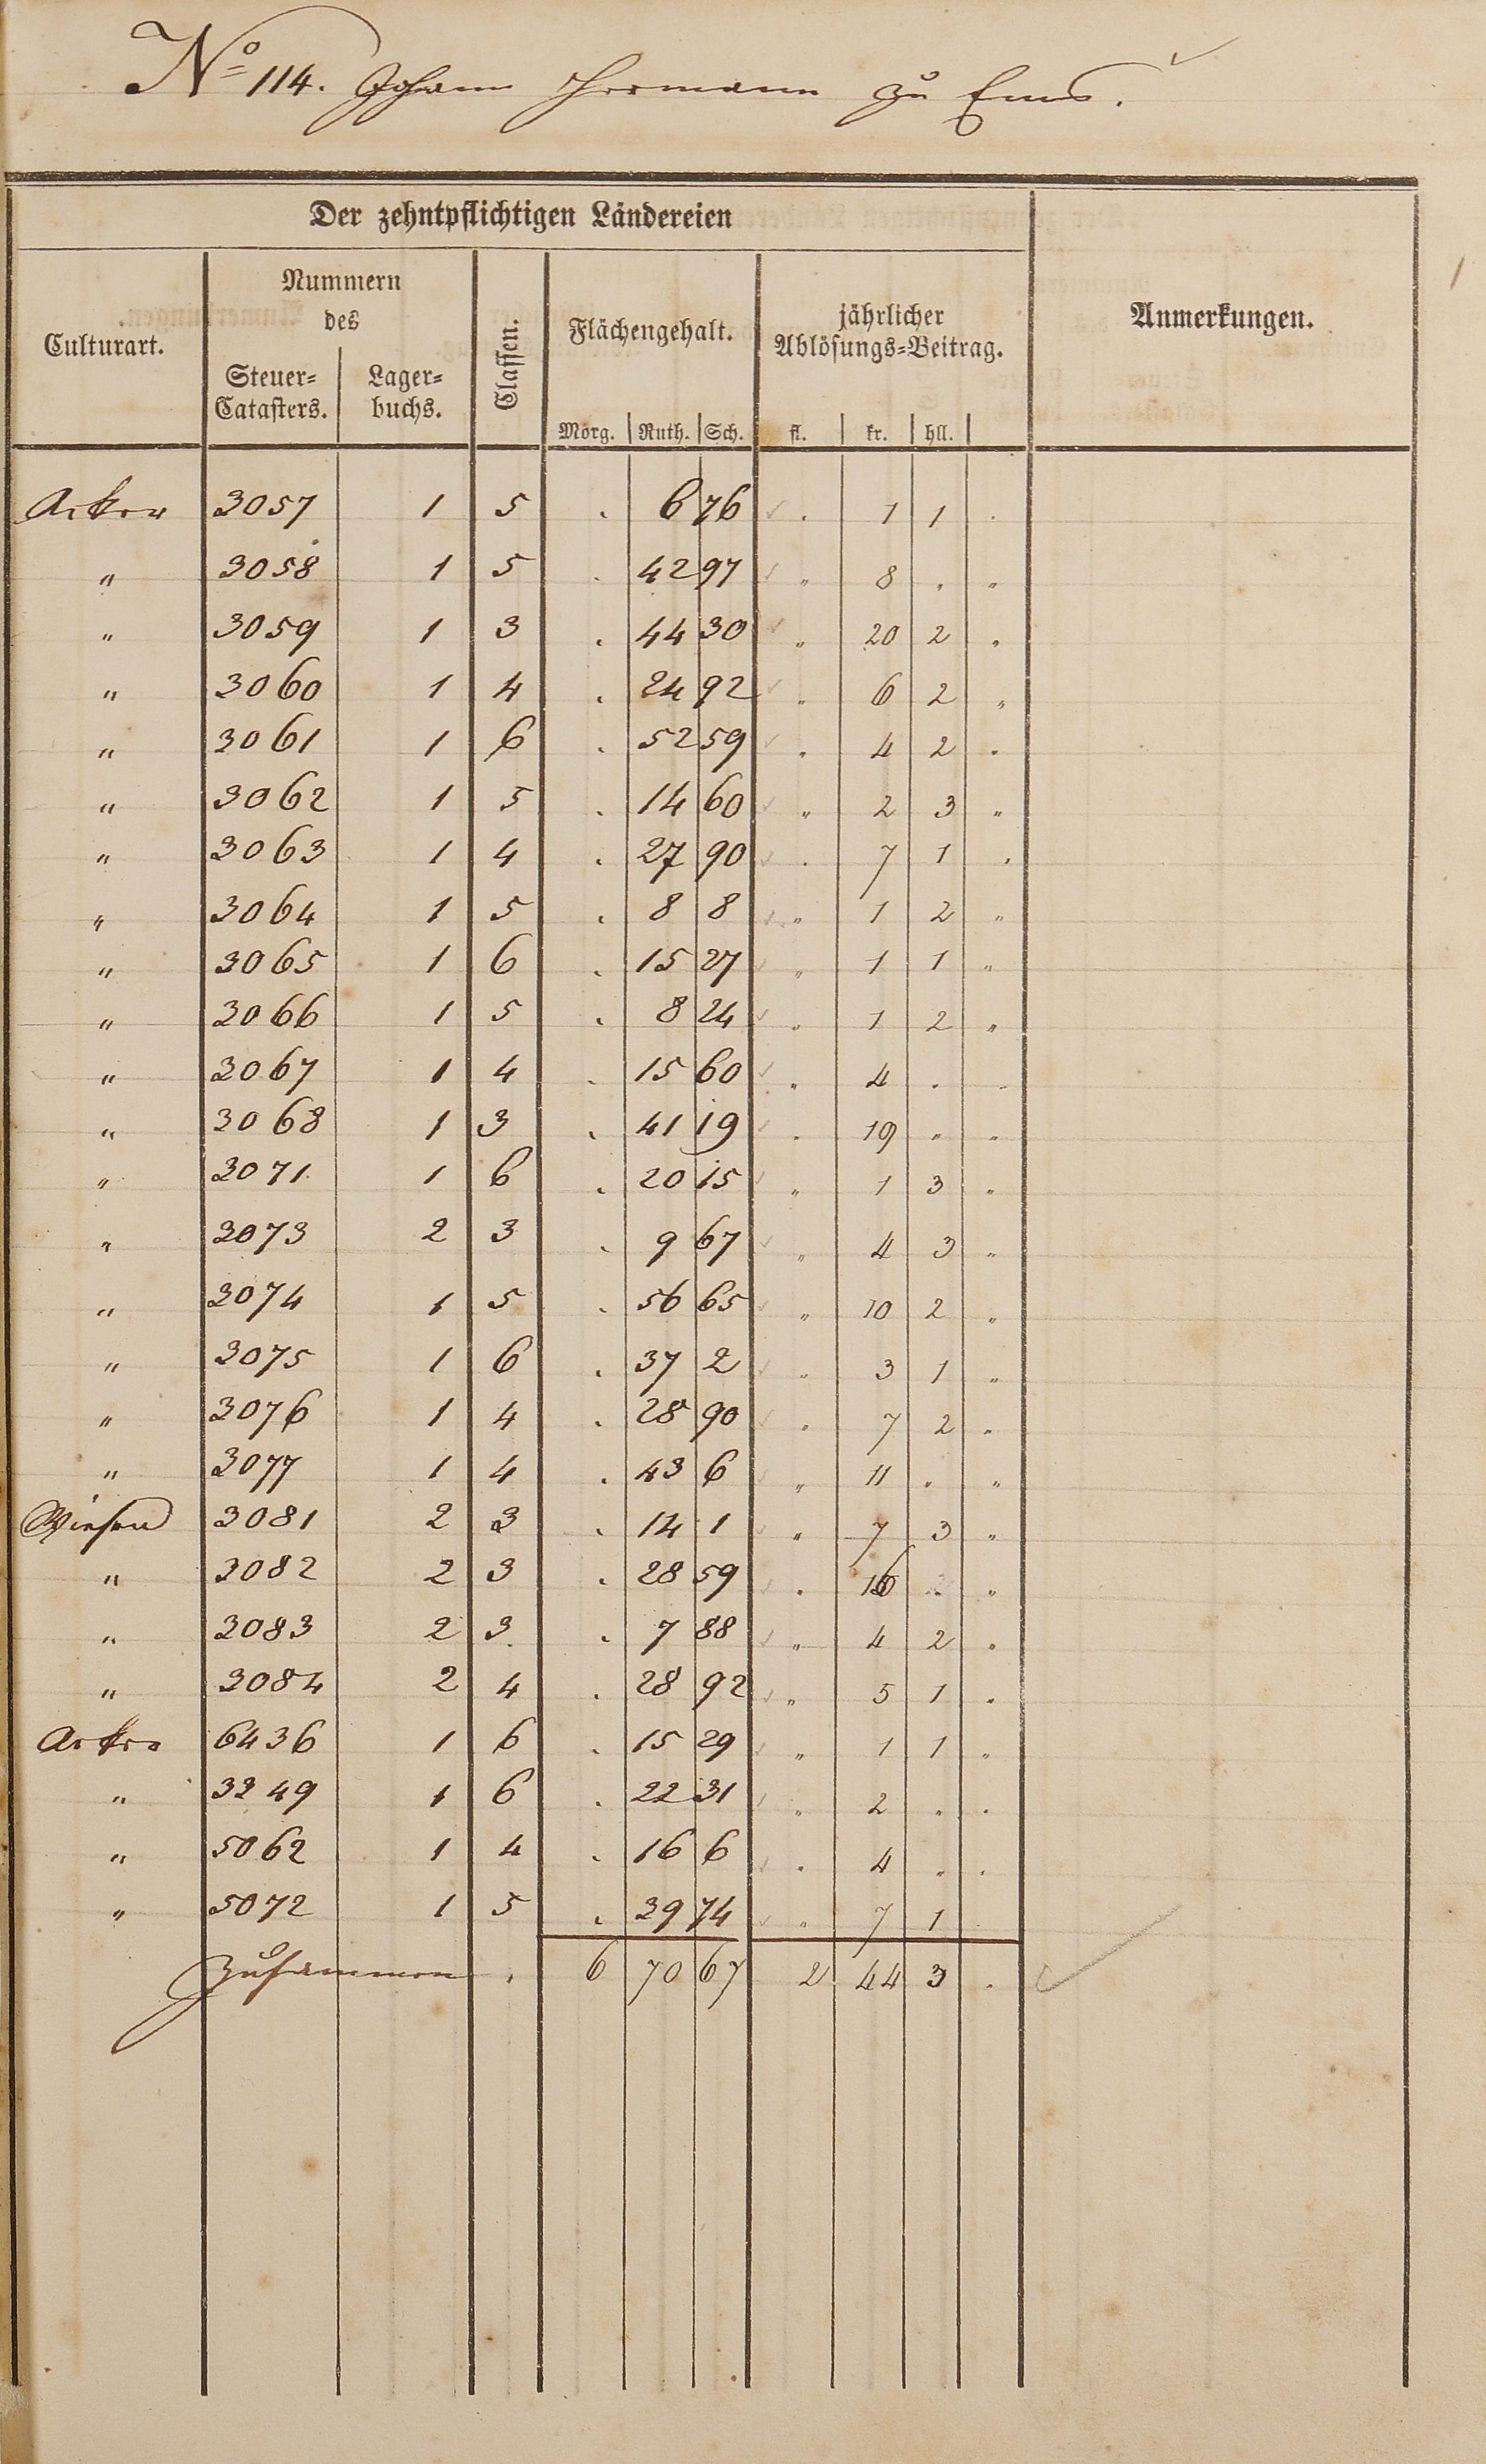 No 114. Johann Hermann zu Ems.
Der zehntpflichtigen Ländereien
Culturart.
Nummern
des
Steuer=
Catasters.
Lager=
buchs.
Classen.
Flächengehalt.
Morg. Ruth. Sch.
jährlicher
Ablösungs=Beitrag.
fl. kr. hll.
Anmerkungen.
Acker 3057 1 5 . 6 76 . 1 1 .
" 3058 1 5 . 42 97 " 8 . "
" 3059 1 3 . 44 30 " 20 2 "
" 3060 1 4 . 24 92 " 6 2 "
" 3061 1 6 . 52 59 " 4 2 "
" 3062 1 5 . 14 60 " 2 3 "
" 3063 1 4 . 27 90 . 7 1 .
" 3064 1 5 . 8 8 " 1 2 "
" 3065 1 6 . 15 27 " 1 1 "
" 3066 1 5 . 8 24 " 1 2 "
" 3067 1 4 . 15 60 " 4 . .
" 3068 1 3 . 41 19 . 19 " "
" 3071 1 6 . 20 15 " 1 3 "
" 3073 2 3 . 9 67 " 4 3 "
" 3074 1 5 . 56 65 " 10 2 "
" 3075 1 6 . 37 2 " 3 1 "
" 3076 1 4 . 28 90 " 7 2 "
" 3077 1 4 . 43 6 " 11 . "
Wiesen 3081 2 3 . 14 1 " 7 3 "
" 3082 2 3 . 28 59 . 16 "
" 3083 2 3 . 7 88 " 4 2 "
" 3084 2 4 . 28 92 " 5 1 "
Acker 6436 1 6 . 15 29 " 1 1 "
" 3249 1 6 . 22 31 " 2 . .
" 5062 1 4 . 16 6 . 4 . .
" 5072 1 5 . 39 74 " 7 1
Zusammen . 6 70 67 2 44 3 .